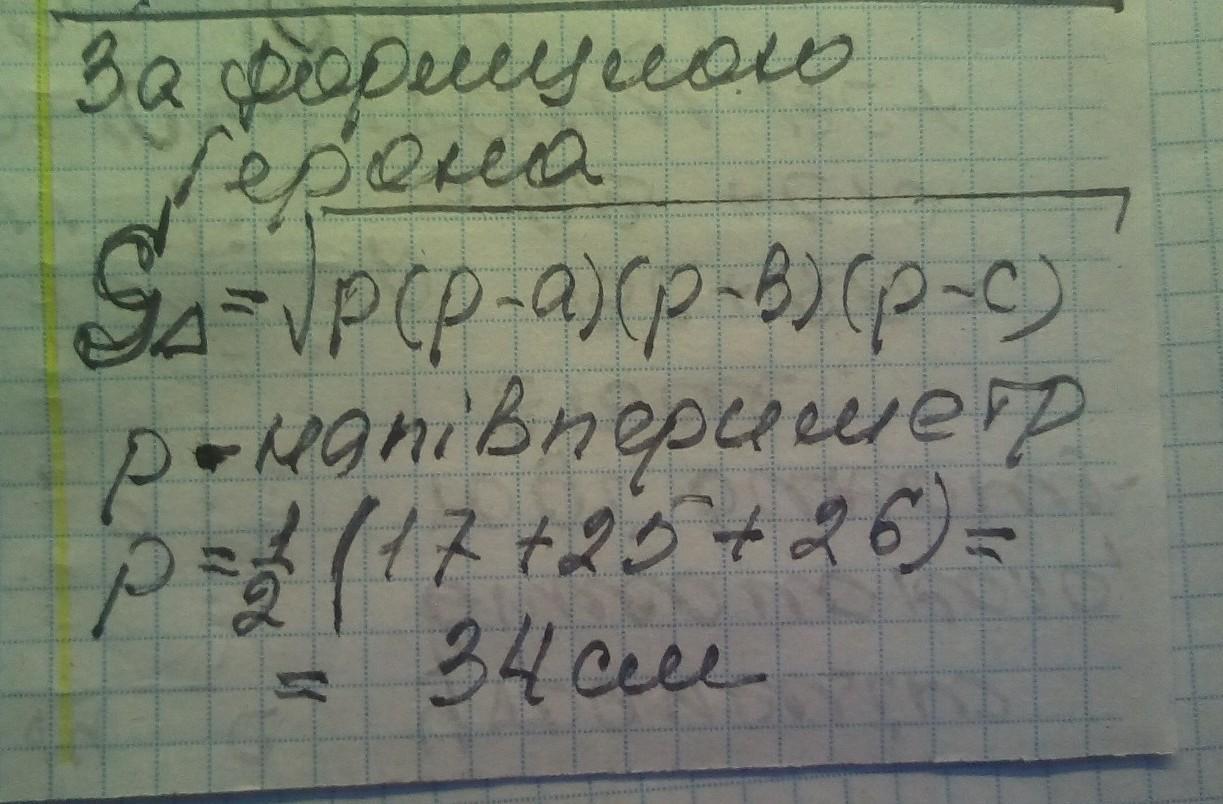 За формулою
Герона
S△ = √p(p-a)(p-в)(p-c)
p - напівпериметр
p = 1/2 (17 + 25 + 26) =
= 34 см